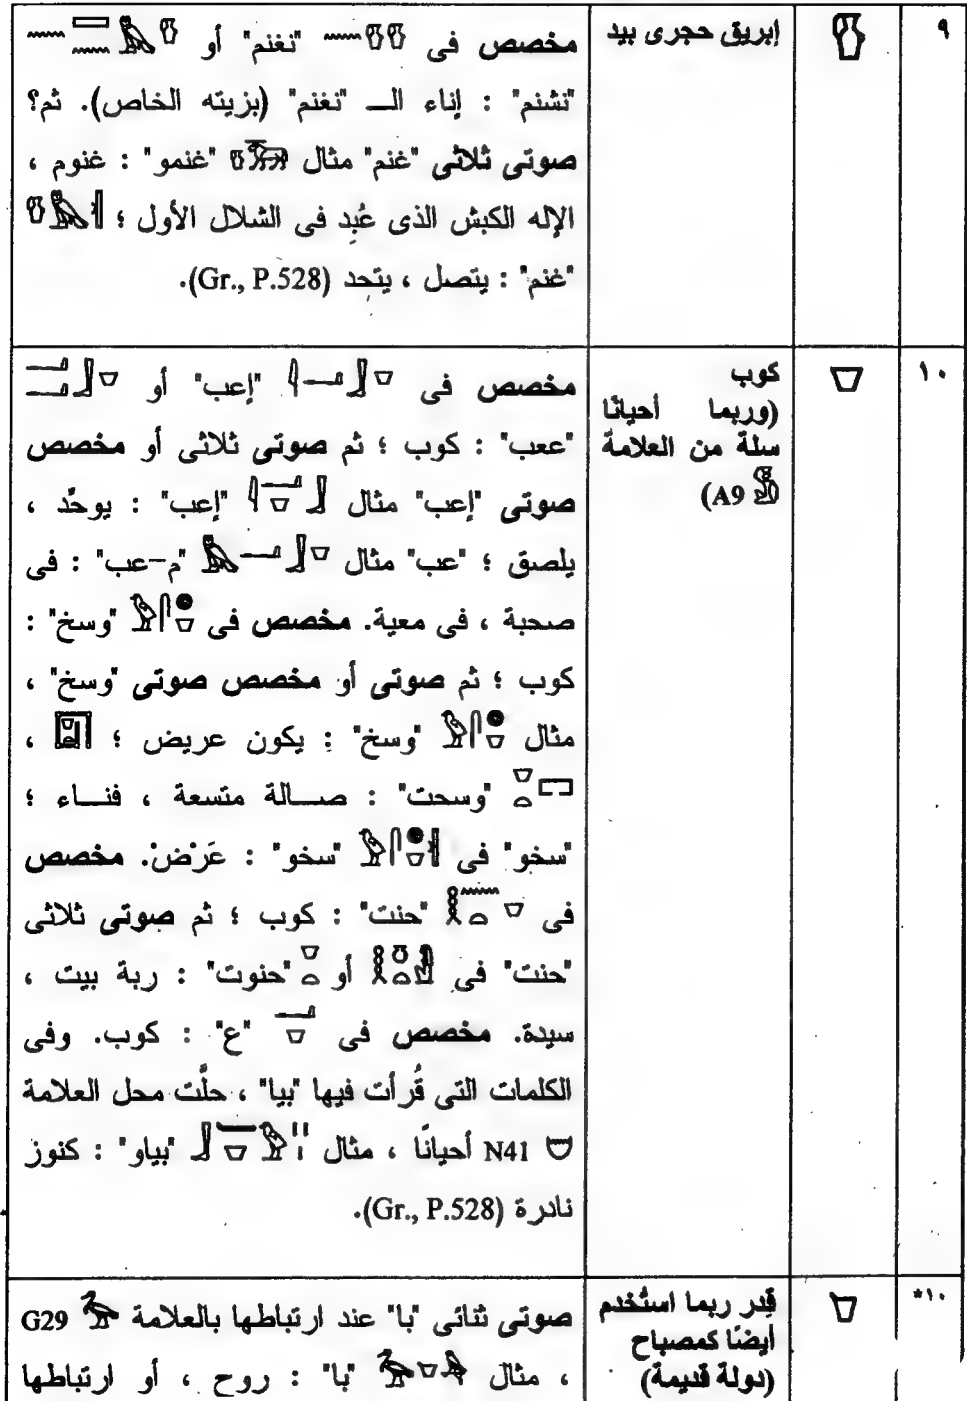 ٩
إبريق حجرى بيد
مخصص فى "نغنم" أو
"نشنم" : إناء الـــ "نغنم" (بزيته الخاص). ثم؟
صوتى ثلاثى "غنم" مثال "غنمو" : غنوم ،
الإله الكبش الذى عُبِد فى الشلال الأول ؛
"غنم" : يتصل ، يتحد (Gr., P.528).
١٠
كوب
(وربما أحيانًا
سلة من العلامة
A9)
مخصص فى "إعب" أو
"ععب" : كوب ؛ ثم صوتى ثلاثى أو مخصص
صوتى "إعب" مثال "إعب" : يوحِّد ،
يلصق ؛ "عب" مثال "م-عب" : فى
صحبة ، فى معية. مخصص فى "وسخ" :
كوب ؛ ثم صوتى أو مخصص صوتى "وسخ" ،
مثال "وسخ" : يكون عريض ؛ ،
"وسحت" : صـــالة متسعة ، فنـــاء ؛
"سخو" فى "سخو" : عَرْضْ. مخصص
فى "حنت" : كوب ؛ ثم صوتى ثلاثى
"حنت" فى أو "حنوت" : ربة بيت ،
سيدة. مخصص فى "ع" : كوب. وفى
الكلمات التى قُرأت فيها "بيا" ، حلَّت محل العلامة
N41 أحيانًا ، مثال "بياو" : كنوز
نادرة (Gr., P.528).
١٠*
قِدر ربما استُخدم
أيضًا كمصباح
(دولة قديمة)
صوتى ثنائى "با" عند ارتباطها بالعلامة G29
، مثال "با" : روح ، أو ارتباطها